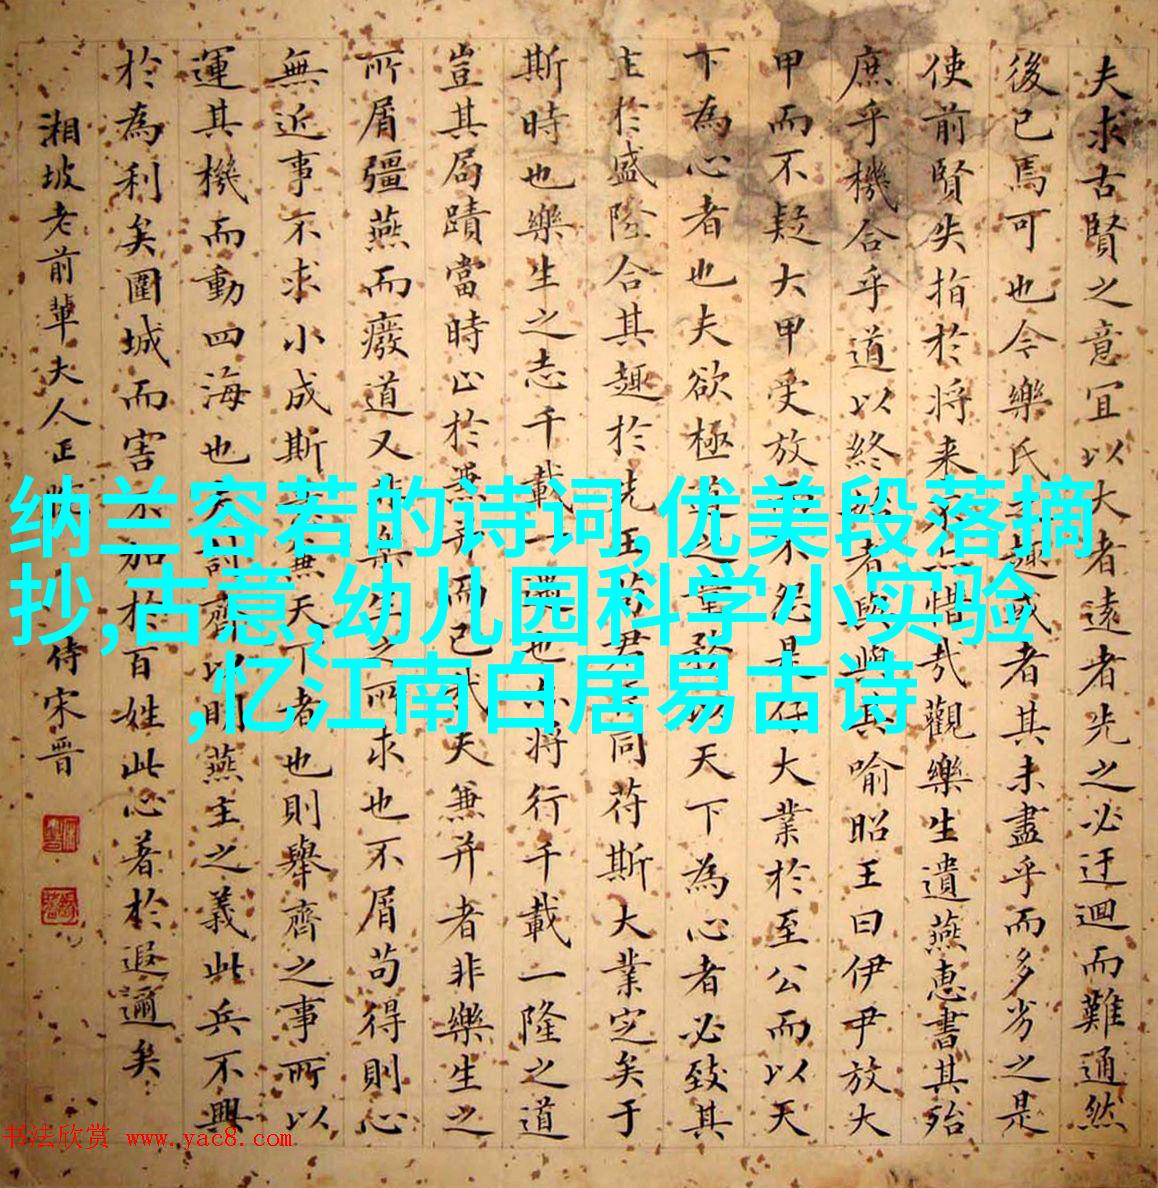 夫求古賢之意宜以大者遠者先之必迂迴而難通然
後已焉可也今樂氏之趣或者其未盡乎而多劣之是
使前賢失指於将来不亦惜哉觀樂生遺燕惠書其殆
庶乎機合乎道以終始者與其喻昭王曰伊尹放大
甲而不疑大甲受放而不怨是存大業於至公而以天
下為心者也夫欲極道之量務以天下為心者必致其
主於盛隆合其趣於先王苟君臣同苻斯大業定矣于
斯時也樂生之志千載一遇也亦将行千載一隆之道
豈其局蹟當時止於兼并而已哉夫兼并者非樂生之
所屑彊燕而廢道又非樂生之所求也不屑苟得則心
無近事不求小成斯意兼天下者也則舉齊之事所以
運其機而動四海也夫討齊以明燕主之義此兵不興
於為利矣圍城而害不加於百姓此心著於遐邇矣
湘坡老前輩夫人正
侍宋晋
纳兰容若的诗词,优美段落摘
抄,古意,幼儿园科学小实验
,忆江南白居易古诗
书法欣赏 www.yac8.com